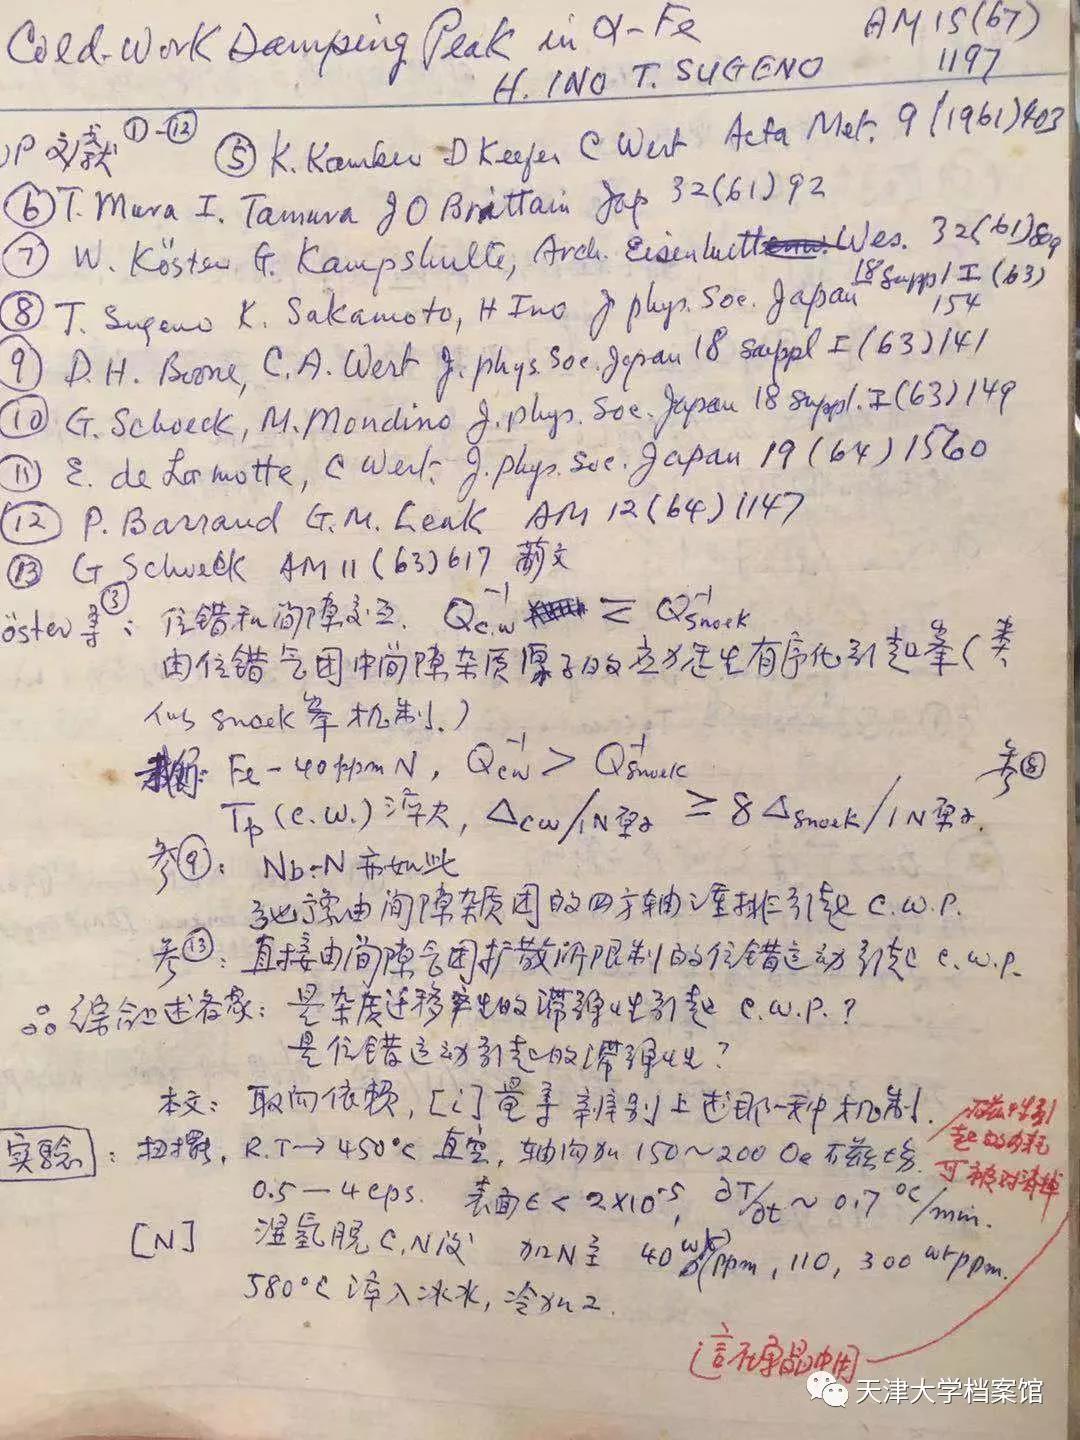 Cold-Work Damping Peak in α-Fe
AM 15(67)
1197
H. INO T. SUGENO
文献 ①-⑫ ⑤ K. Kamber D Keefer C Wert Acta Met. 9 (1961) 403
⑥ T. Mura I. Tamura J O Brittain Jap 32(61) 92
⑦ W. Köster G. Kampshulte, Arch. Eisenhutt Wes. 32(61)
⑧ T. Sugeno K. Sakamoto, H Ino J phys. Soc. Japan 18 Suppl I (63) 154
⑨ D. H. Boone, C. A. Wert J. phys. Soc. Japan 18 Suppl I (63) 141
⑩ G. Schoeck, M. Mondino J. phys. Soc. Japan 18 Suppl. I (63) 149
⑪ E. de Lamotte, C Wert. J. phys. Soc. Japan 19 (64) 1560
⑫ P. Barrand G. M. Leak AM 12(64) 1147
⑬ G Schoeck AM 11 (63) 617 前文
öster等③: 位错和间隙交互. Q⁻¹c.w ≥ Q⁻¹snoek
由位错气团中间隙杂质原子的应力诱生有序化引起峯(类
似snoek峯机制.)
Fe-40ppmN, Q⁻¹cw > Q⁻¹snoek 参⑧
Tp (c.w.) 淬火, Δcw/1N原子 ≥ 8 Δsnoek/1N原子.
参⑨: Nb-N 亦如此
由间隙杂质团的四方轴重排引起 C.W.P.
参⑬: 直接由间隙气团扩散所限制的位错运动引起 C.W.P.
∴综合上述各家: 是杂质迁移产生的滞弹性引起 C.W.P.?
是位错运动引起的滞弹性?
本文: 取向依赖, [i]量等 辨别上述那一种机制.
实验: 扭摆, R.T→450°C 真空, 轴向加 150~200 Oe 磁场
0.5-4 cps. 表面ε<2×10⁻⁵, ∂T/∂t ~ 0.7 °C/min.
[N] 湿氢脱C,N后 加N至 40 wt ppm, 110, 300 wt ppm.
580°C 淬入冰水, 冷加工.
起的内耗
可被对消掉
這在单晶中用
天津大学档案馆